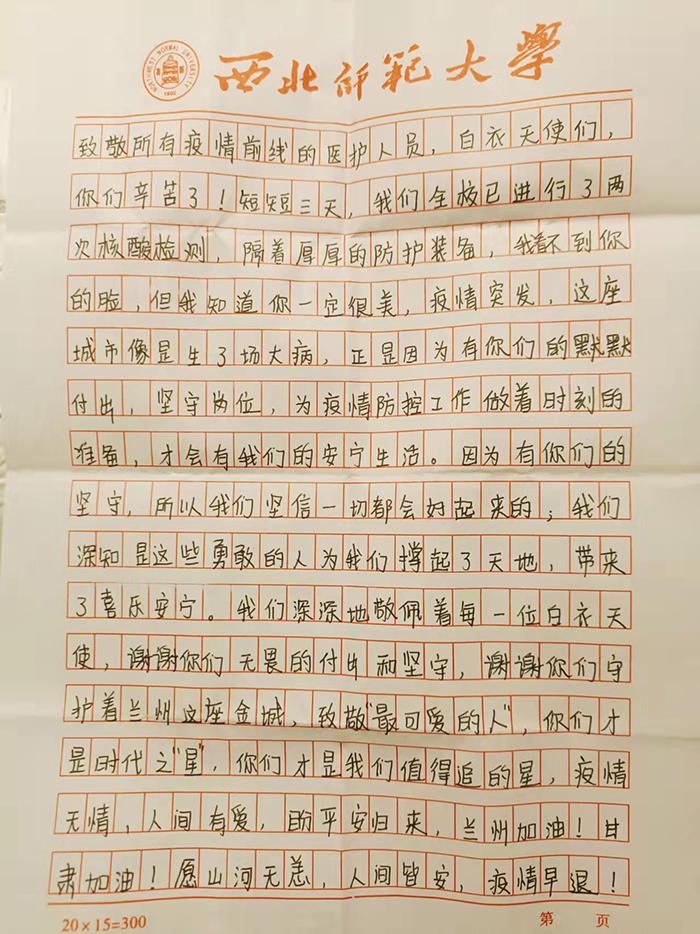 NORTHWEST NORMAL UNIVERSITY
1902
西北师範大學
致敬所有疫情前线的医护人员，白衣天使们，
你们辛苦了！短短三天，我们全校已进行了两
次核酸检测，隔着厚厚的防护装备，我看不到你
的脸，但我知道你一定很美，疫情突发，这座
城市像是生了场大病，正是因为有你们的默默
付出，坚守岗位，为疫情防控工作做着时刻的
准备，才会有我们的安宁生活。因为有你们的
坚守，所以我们坚信一切都会好起来的；我们
深知是这些勇敢的人为我们撑起了天地，带来
了喜乐安宁。我们深深地敬佩着每一位白衣天
使，谢谢你们无畏的付出和坚守，谢谢你们守
护着兰州这座金城，致敬"最可爱的人"，你们才
是时代之"星"，你们才是我们值得追的星，疫情
无情，人间有爱，盼平安归来，兰州加油！甘
肃加油！愿山河无恙，人间皆安，疫情早退！
20×15=300
第 页